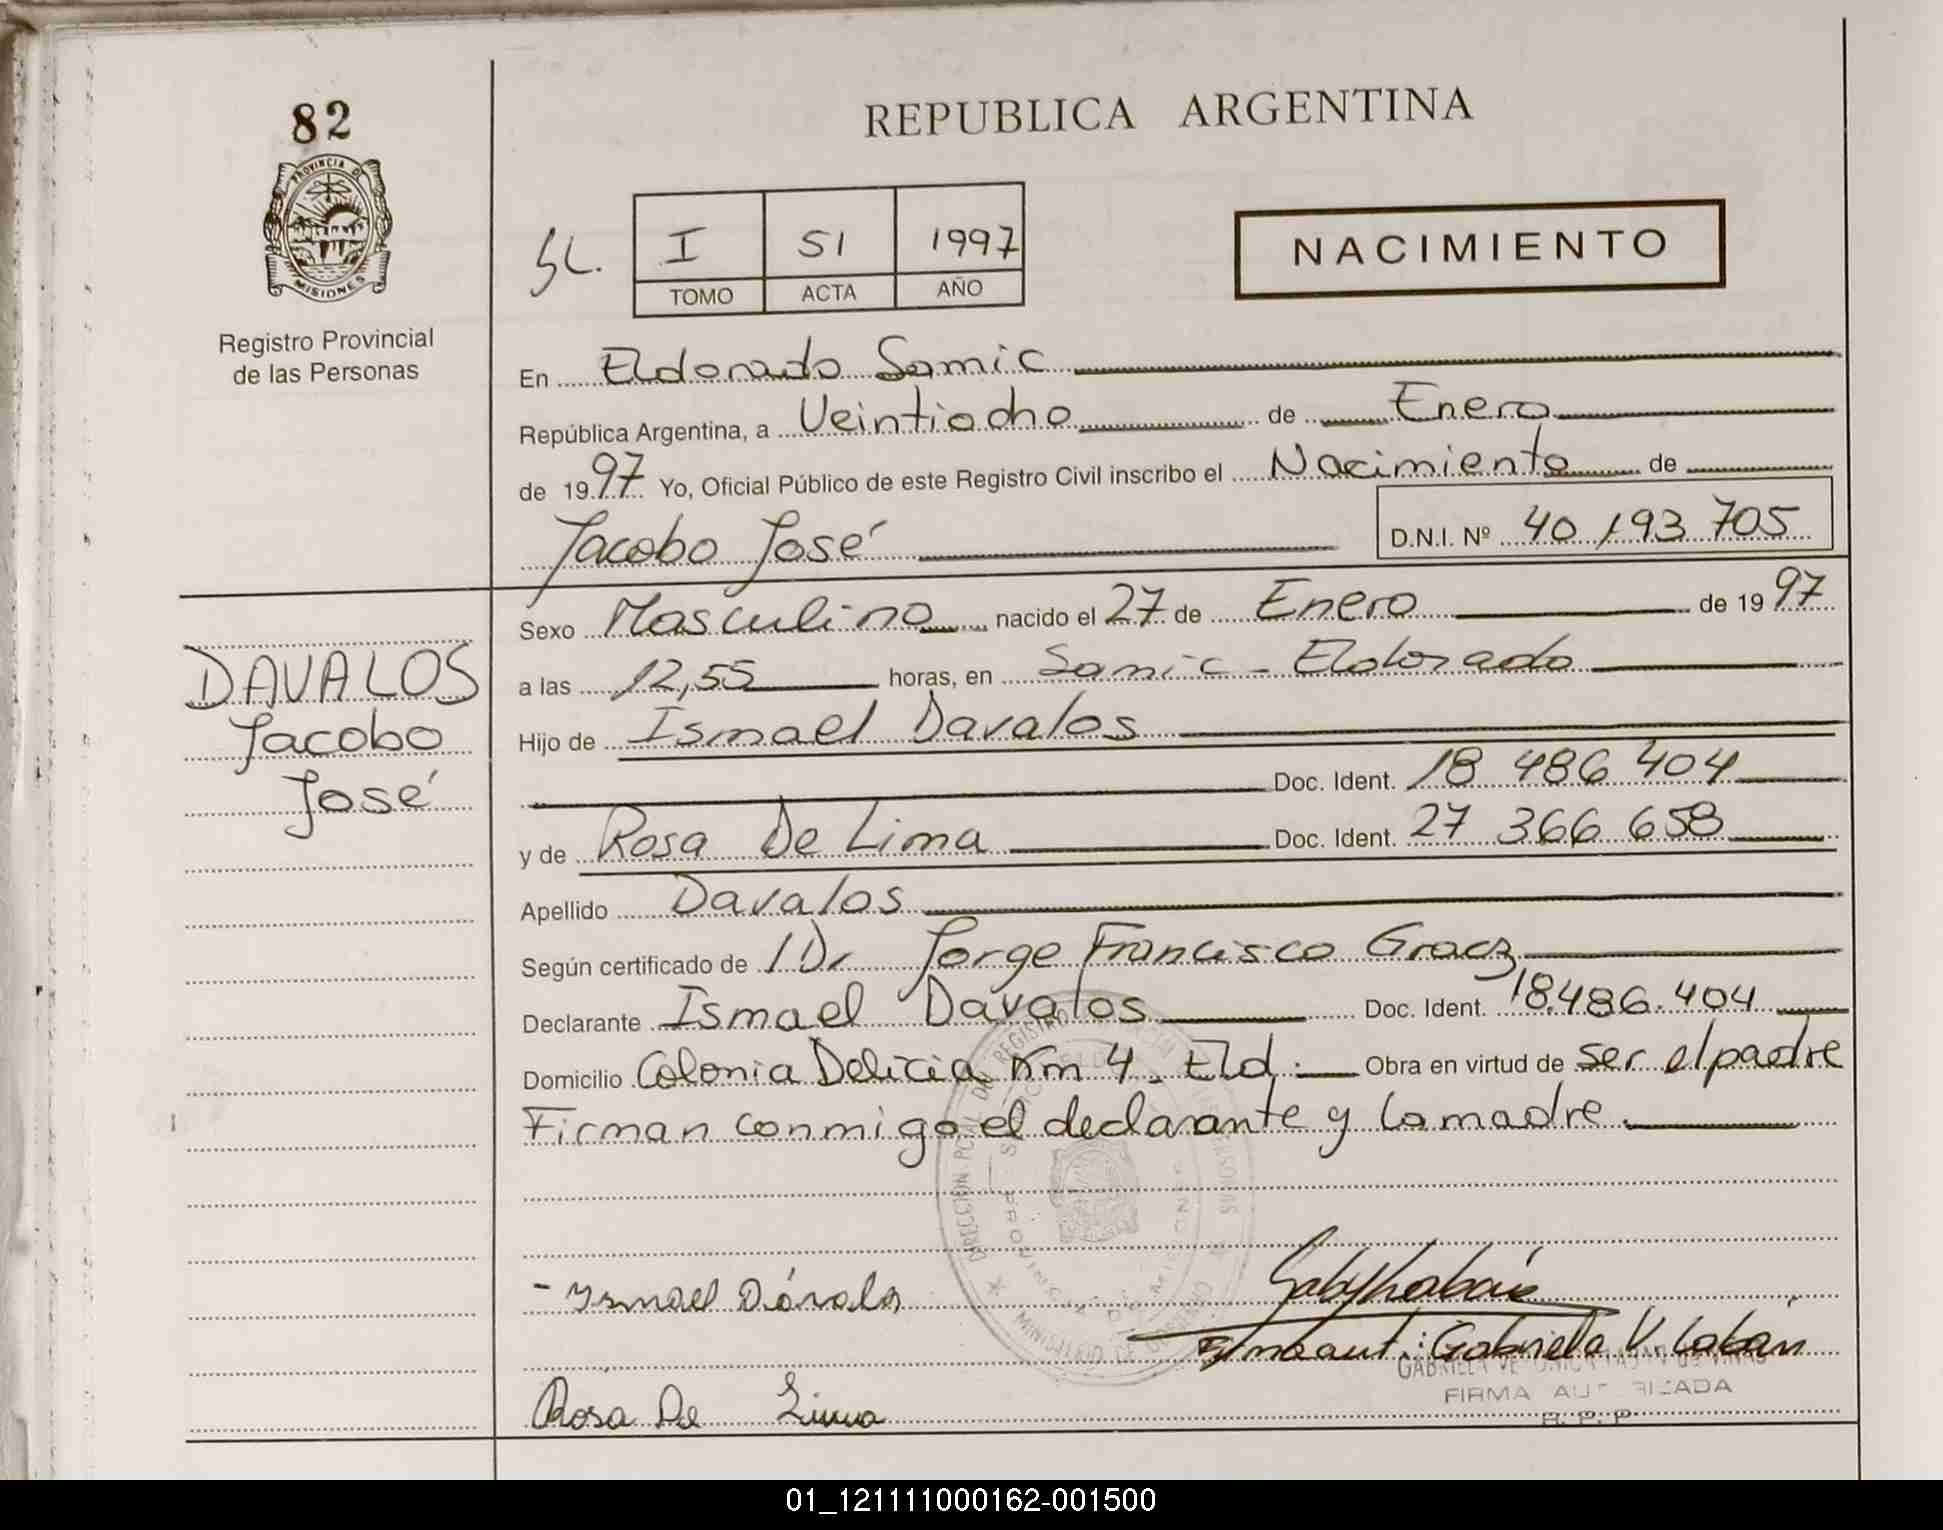 82
REPUBLICA ARGENTINA
PROVINCIA DE
MISIONES
Registro Provincial
de las Personas
SL. I 51 1997
TOMO ACTA AÑO
NACIMIENTO
En Eldorado Samic
República Argentina, a Veintiocho de Enero
de 1997 Yo, Oficial Público de este Registro Civil inscribo el Nacimiento de
Jacobo José D.N.I. Nº 40 193 705
DAVALOS
Jacobo
José
Sexo Masculino nacido el 27 de Enero de 1997
a las 12,55 horas, en Samic - Eldorado
Hijo de Ismael Davalos
Doc. Ident. 18 486 404
y de Rosa De Lima Doc. Ident. 27 366 658
Apellido Davalos
Según certificado de 1 Dr Jorge Francisco Gracz
Declarante Ismael Davalos Doc. Ident. 18.486.404
Domicilio Colonia Delicia Km 4. Eld. Obra en virtud de ser el padre
Firman conmigo el declarante y la madre
- Ismael Dávalos
Gabriela V. Cabán
Rosa De Lima
FIRMA AUTORIZADA
R. P. P
01_121111000162-001500